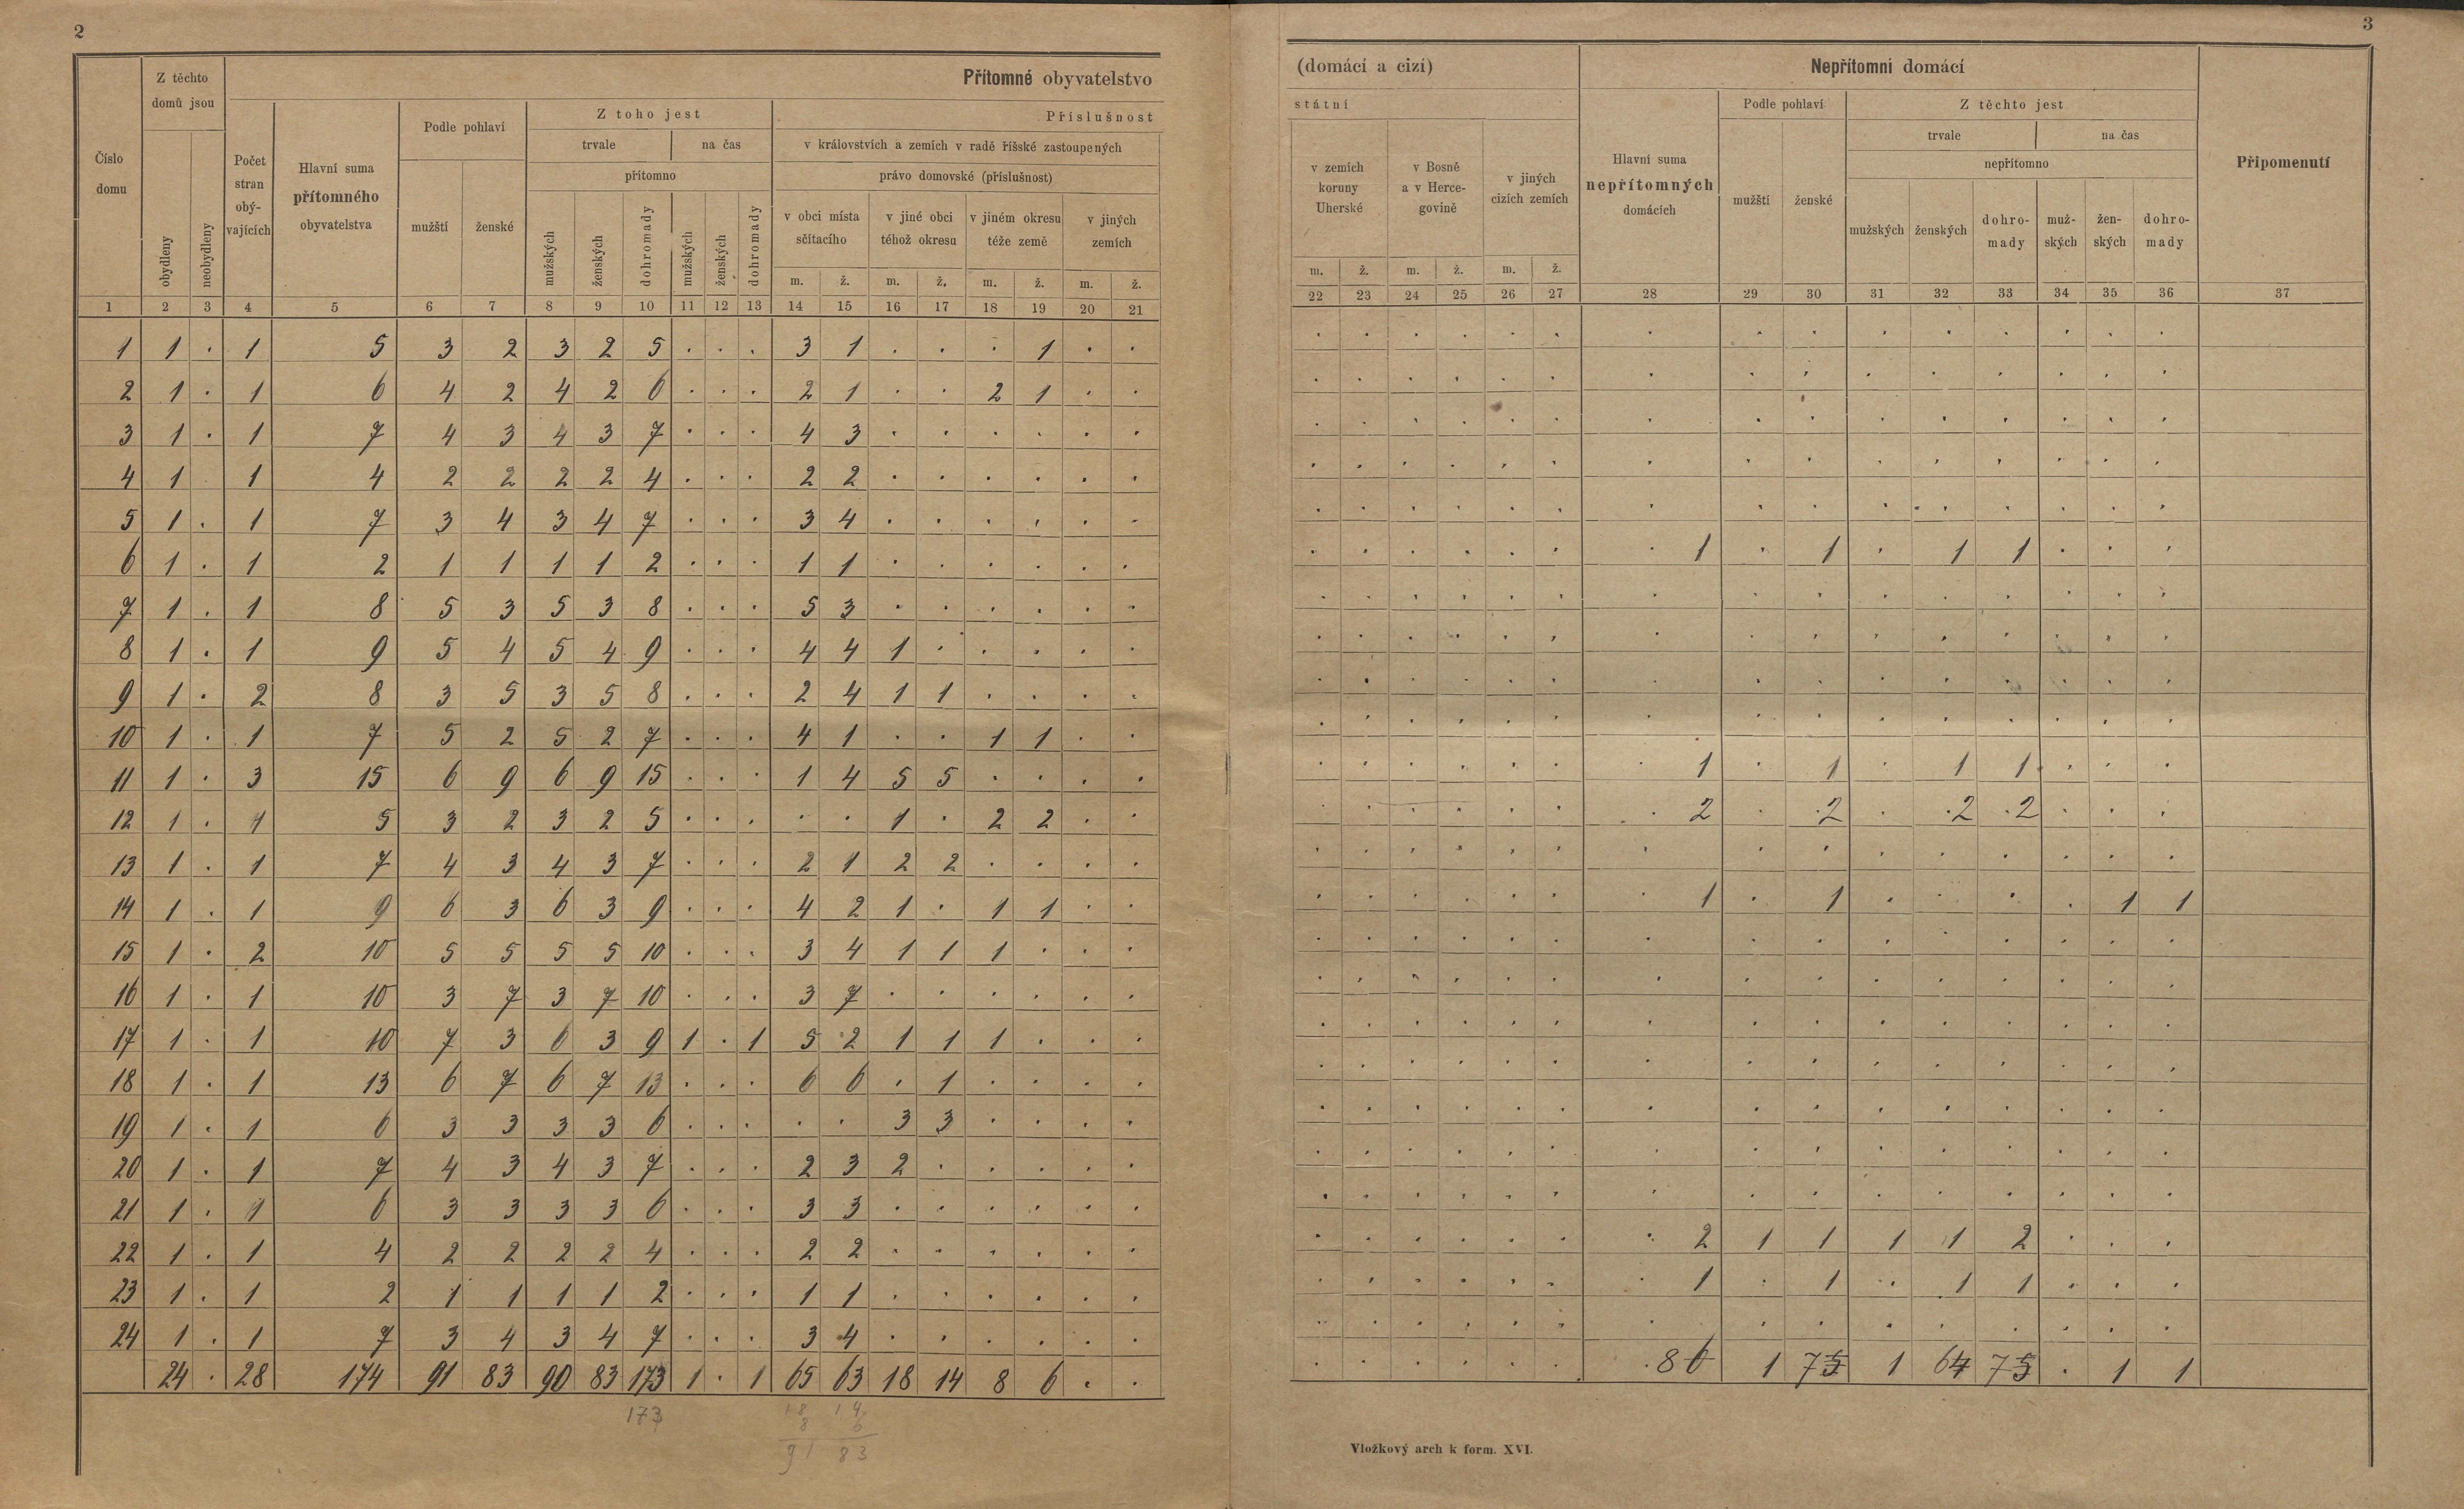 2
3
Číslo domu
Z těchto domů jsou
obydleny
neobydleny
Přítomné obyvatelstvo
(domácí a cizí)
Počet stran obývajících
Hlavní suma přítomného obyvatelstva
Podle pohlaví
mužští
ženské
Z toho jest
trvale
na čas
přítomno
mužských
ženských
dohromady
mužských
ženských
dohromady
Příslušnost
státní
v královstvích a zemích v radě říšské zastoupených
právo domovské (příslušnost)
v obci místa sčítacího
v jiné obci téhož okresu
v jiném okresu téže země
v jiných zemích
m. ž. m. ž. m. ž. m. ž.
v zemích koruny Uherské
v Bosně a v Hercegovině
v jiných cizích zemích
m. ž. m. ž. m. ž.
Nepřítomní domácí
Hlavní suma nepřítomných domácích
Podle pohlaví
mužští
ženské
Z těchto jest
trvale
na čas
nepřítomno
mužských
ženských
dohromady
mužských
ženských
dohromady
Připomenutí
1 2 3 4 5 6 7 8 9 10 11 12 13 14 15 16 17 18 19 20 21
22 23 24 25 26 27 28 29 30 31 32 33 34 35 36 37
1 1 . 1 5 3 2 3 2 5 . . . 3 1 . . . 1 . .
2 1 . 1 6 4 2 4 2 6 . . . 2 1 . . 2 1 . .
3 1 . 1 7 4 3 4 3 7 . . . 4 3 . . . . . .
4 1 1 4 2 2 2 2 4 . . . 2 2 . . . . . .
5 1 . 1 7 3 4 3 4 7 . . . 3 4 . . . . . .
6 1 . 1 2 1 1 1 1 2 . . . 1 1 . . . . . . . . . . . . 1 . 1 . 1 1 . . .
7 1 . 1 8 5 3 5 3 8 . . . 5 3 . . . . . .
8 1 . 1 9 5 4 5 4 9 . . . 4 4 1 . . . . .
9 1 . 2 8 3 5 3 5 8 . . . 2 4 1 1 . . . .
10 1 . 1 7 5 2 5 2 7 . . . 4 1 . . 1 1 . .
11 1 . 3 15 6 9 6 9 15 . . . 1 4 5 5 . . . . . . . . . . 1 . 1 . 1 1 . . .
12 1 . 1 5 3 2 3 2 5 . . . . . 1 . 2 2 . . . . . . . . 2 . 2 . 2 2 . . .
13 1 . 1 7 4 3 4 3 7 . . . 2 1 2 2 . . . .
14 1 . 1 9 6 3 6 3 9 . . . 4 2 1 . 1 1 . . . . . . . . 1 . 1 . . . . 1 1
15 1 . 2 10 5 5 5 5 10 . . . 3 4 1 1 1 . . .
16 1 . 1 10 3 7 3 7 10 . . . 3 7 . . . . . .
17 1 . 1 10 7 3 6 3 9 1 . 1 5 2 1 1 1 . . .
18 1 . 1 13 6 7 6 7 13 . . . 6 6 . 1 . . . .
19 1 . 1 6 3 3 3 3 6 . . . . . 3 3 . . . .
20 1 . 1 7 4 3 4 3 7 . . . 2 3 2 . . . . .
21 1 . 1 6 3 3 3 3 6 . . . 3 3 . . . . . .
22 1 . 1 4 2 2 2 2 4 . . . 2 2 . . . . . . . . . . . . 2 1 1 1 1 2 . . .
23 1 . 1 2 1 1 1 1 2 . . . 1 1 . . . . . . . . . . . . 1 . 1 . 1 1 . . .
24 1 . 1 7 3 4 3 4 7 . . . 3 4 . . . . . .
24 . 28 174 91 83 90 83 173 1 . 1 65 63 18 14 8 6 . . . . . . . . 8 1 7 1 6 7 . 1 1
173
18 14
8 6
91 83
Vložkový arch k form. XVI.